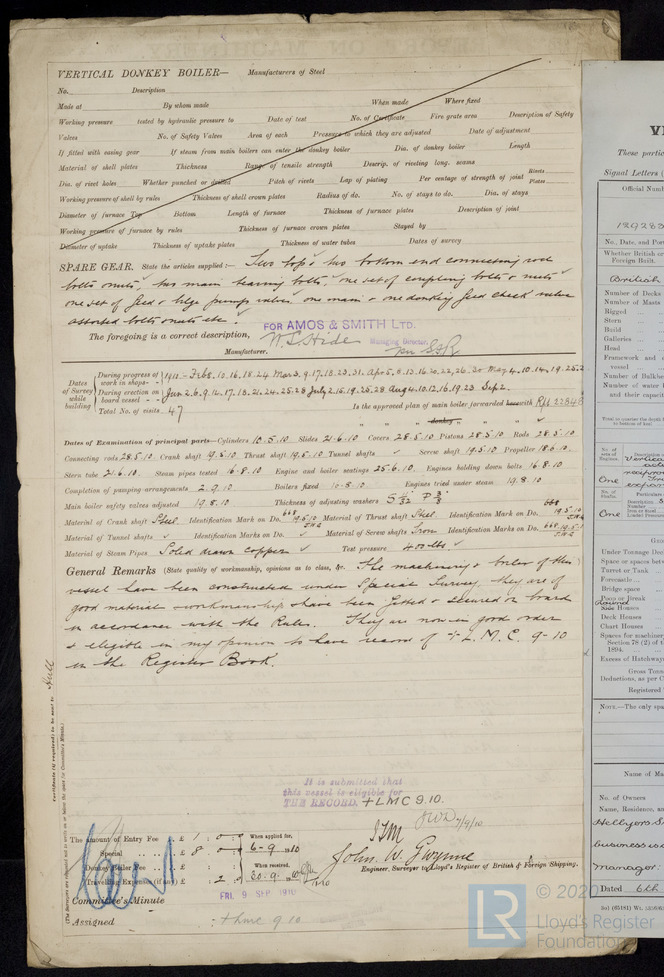 VERTICAL DONKEY BOILER— Manufacturers of Steel
No. Description
Made at By whom made When made Where fixed
Working pressure tested by hydraulic pressure to Date of test No. of Certificate Fire grate area Description of Safety
Valves No. of Safety Valves Area of each Pressure to which they are adjusted Date of adjustment
If fitted with easing gear If steam from main boilers can enter the donkey boiler Dia. of donkey boiler Length
Material of shell plates Thickness Range of tensile strength Descrip. of riveting long. seams
Dia. of rivet holes Whether punched or drilled Pitch of rivets Lap of plating Per centage of strength of joint Rivets Plates
Working pressure of shell by rules Thickness of shell crown plates Radius of do. No. of stays to do. Dia. of stays
Diameter of furnace Top Bottom Length of furnace Thickness of furnace plates Description of joint
Working pressure of furnace by rules Thickness of furnace crown plates Stayed by
Diameter of uptake Thickness of uptake plates Thickness of water tubes Dates of survey
SPARE GEAR. State the articles supplied:— Two top & two bottom end connecting rod
bolts & nuts, two main bearing bolts, one set of coupling bolts & nuts
one set of feed & bilge pump valves one main & one donkey feed check valve
assorted bolts & nuts etc.
The foregoing is a correct description, FOR AMOS & SMITH LTD.
Manufacturer. W. S. Hide Managing Director.
Dates of Survey while building
During progress of work in shops - - 1910:- Feb 8. 10. 16. 18. 24 Mar 3. 9. 17. 18. 23. 31. Apr 5. 8. 13. 16. 20. 22. 26. 30 May 4. 10. 14. 19. 25. 2
During erection on board vessel - - Jun 2. 6. 9. 14. 17. 18. 21. 24. 25. 28 July 2. 16. 19. 25. 28 Aug 4. 10. 12. 16. 19 23 Sep 2.
Total No. of visits 47 Is the approved plan of main boiler forwarded herewith Rpt 22848
" " " donkey " " "
Dates of Examination of principal parts—Cylinders 10.5.10 Slides 21.6.10 Covers 28.5.10 Pistons 28.5.10 Rods 28.5.10
Connecting rods 28.5.10 Crank shaft 19.5.10 Thrust shaft 19.5.10 Tunnel shafts ✓ Screw shaft 19.5.10 Propeller 18.6.10
Stern tube 21.6.10 Steam pipes tested 16.8.10 Engine and boiler seatings 25.6.10 Engines holding down bolts 16.8.10
Completion of pumping arrangements 2.9.10 Boilers fixed 10.8.10 Engines tried under steam 19.8.10
Main boiler safety valves adjusted 19.8.10 Thickness of adjusting washers S 11/32 P 3/8
Material of Crank shaft Steel Identification Mark on Do. 668 19.5.10 Material of Thrust shaft Steel Identification Mark on Do. 668 19.5.10
Material of Tunnel shafts ✓ Identification Marks on Do. ✓ Material of Screw shafts Iron Identification Marks on Do. 668 19.5.1
Material of Steam Pipes Solid drawn copper ✓ Test pressure 400 lbs ✓
General Remarks (State quality of workmanship, opinions as to class, &c. The machinery & boiler of this
vessel have been constructed under Special Survey, they are of
good material & workmanship & have been fitted & secured on board
in accordance with the Rules. They are now in good order
& eligible in my opinion to have record of + L. M. C. 9-10
in the Register Book.
Certificate (if required) to be sent to Hull
(The Surveyors are requested not to write on or below the space for Committee's Minute.)
It is submitted that
this vessel is eligible for
THE RECORD. + LMC 9.10.
7/9/10
The amount of Entry Fee £ 1 : 0 : When applied for,
Special £ 8 : 0 : 6-9-1910
Donkey Boiler Fee £ When received,
Travelling Expenses (if any) £ 30.9.10
John. W. Gwynne
Engineer, Surveyor to Lloyd's Register of British & Foreign Shipping.
Committee's Minute FRI. 9 SEP 1910
Assigned + LMC 9 10
These partic
Signal Letters (
Official Numb
129283
No., Date, and Por
Whether British or
Foreign Built.
British
Number of Decks
Number of Masts
Rigged
Stern
Build
Galleries
Head
Framework and
Number of Bulkh
Number of water
and their capacit
One
Under Tonnage Dec
Space or spaces betw
Turret or Trunk
Forecastle
Bridge space
Poop or Break
Round Houses
Deck Houses
Chart Houses
Spaces for machiner
Section 78 (2) of t
1894.
Excess of Hatchway
Gross Tonn
Deductions, as per C
Registered
NOTE.—The only spa
Name of Ma
No. of Owners
Name, Residence, an
Hellyers S
business
Manager
Dated 6th
LR
© 2020
Lloyd's Register
Foundation